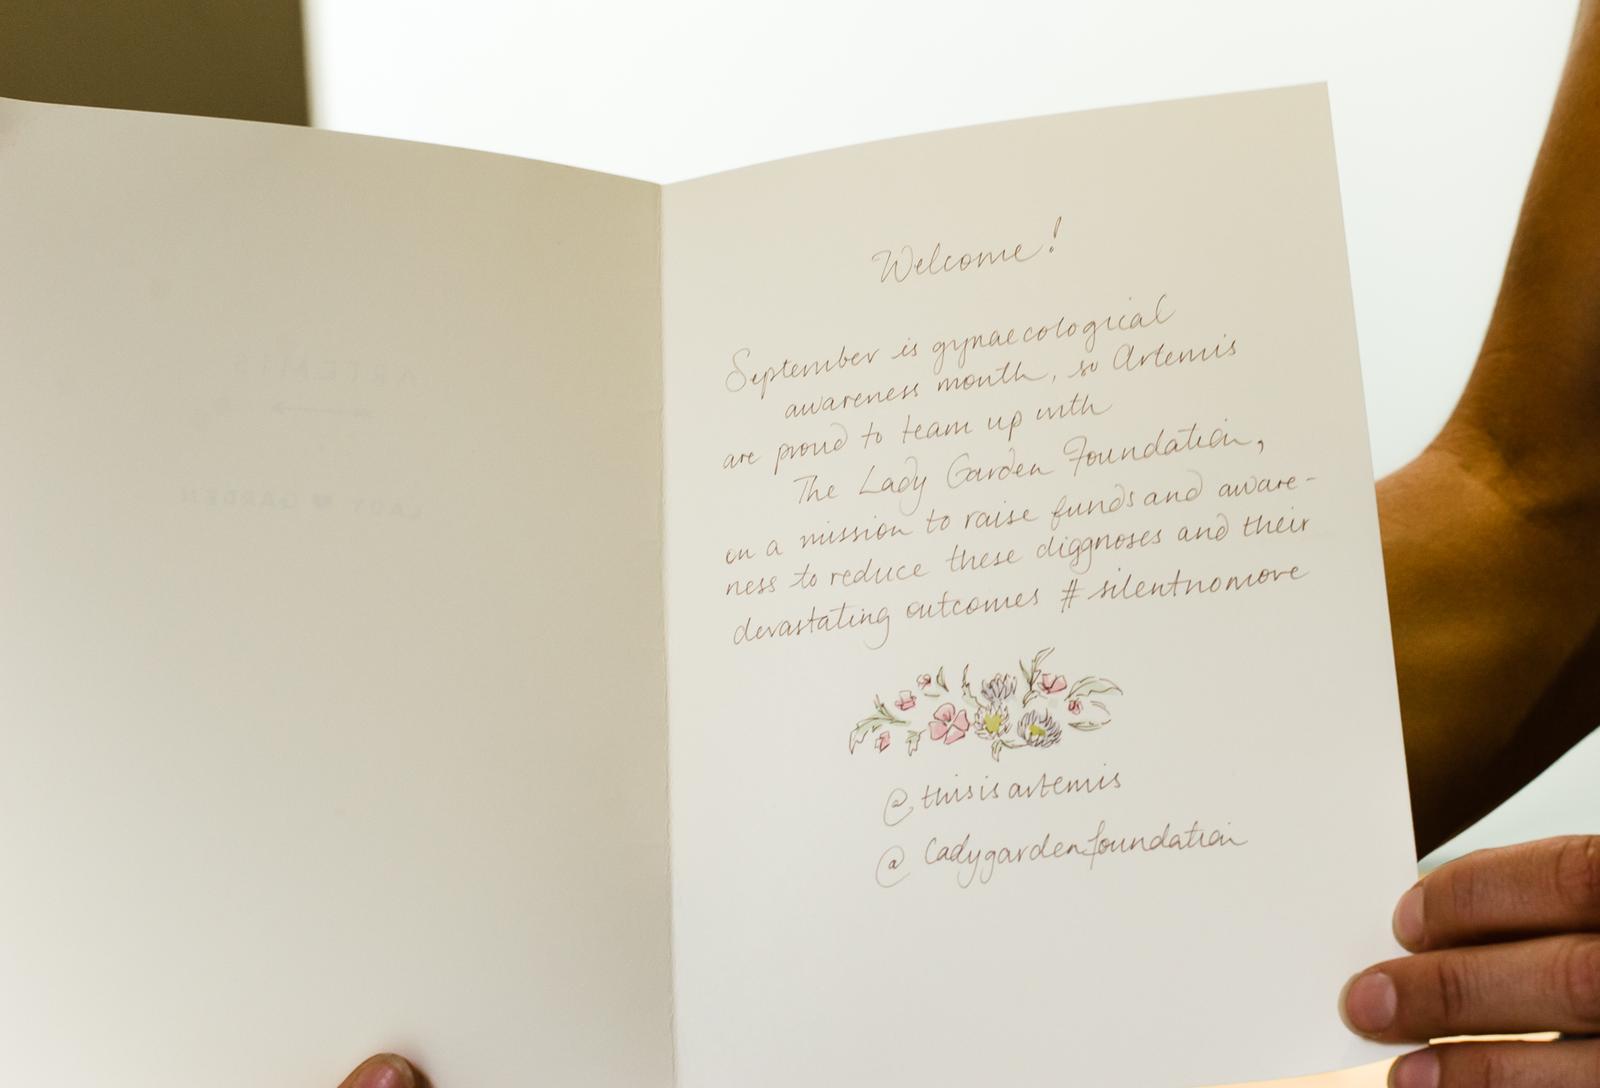 Welcome!
September is gynaecological
awareness month, so Artemis
are proud to team up with
The Lady Garden Foundation,
on a mission to raise funds and aware-
ness to reduce these diagnoses and their
devastating outcomes #silentnomore
@thisisartemis
@ladygardenfoundation
ARTEMIS
LADY ♥ GARDEN